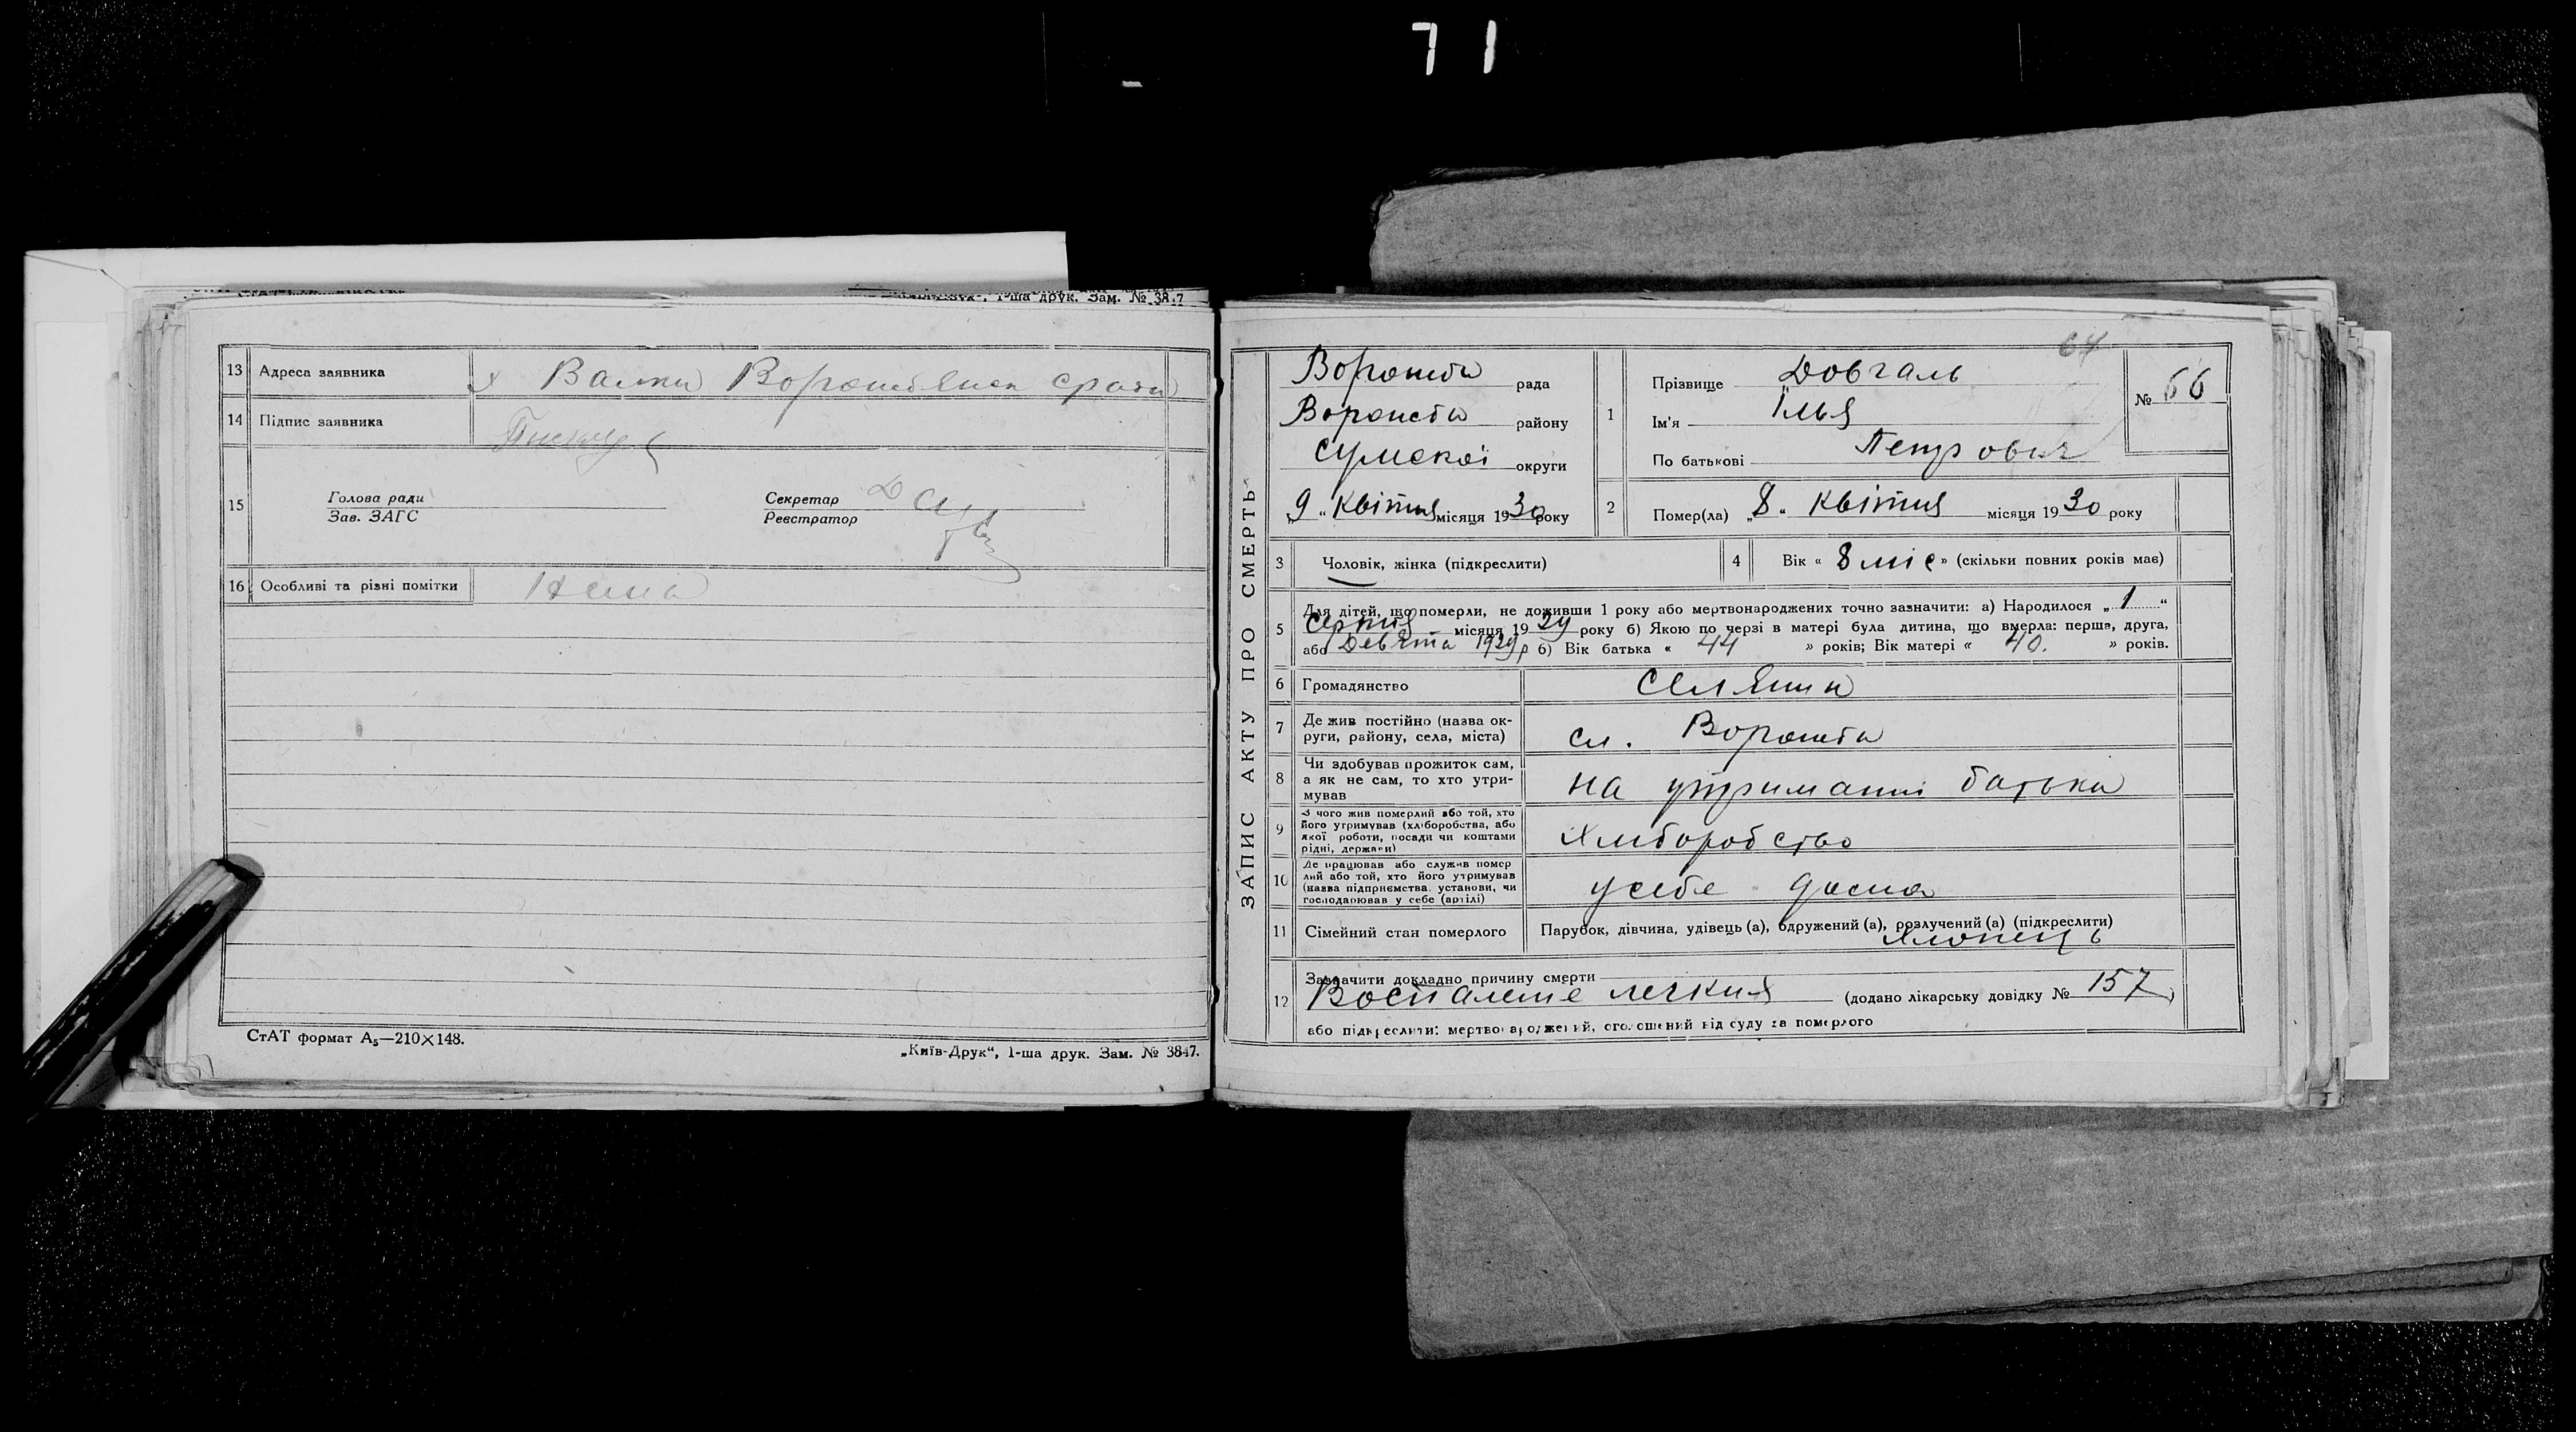 71
1-ша друк. Зам. № 3847
13 Адреса заявника х Валки Ворожбянск сради
14 Підпис заявника
15 Голова ради
Зав. ЗАГС
Секретар
Реєстратор
16 Особливі та різні помітки Нема
СтАТ формат А₅—210×148.
„Київ-Друк“, 1-ша друк. Зам. № 3847.
64
ЗАПИС АКТУ ПРО СМЕРТЬ
Ворожба рада
Ворожба району
Сумської округи
„9“ Квітня місяця 1930 року
1 Прізвище Довгаль
Ім'я Ілья
По батькові Петрович
№ 66
2 Помер(ла) „8“ Квітня місяця 1930 року
3 Чоловік, жінка (підкреслити)
4 Вік « 8 міс » (скільки повних років має)
5 Для дітей, що померли, не доживши 1 року або мертвонароджених точно зазначити: а) Народилося „1“
Серпня місяця 1929 року б) Якою по черзі в матері була дитина, що вмерла: перша, друга,
або Девята 1929 р б) Вік батька « 44 » років; Вік матері « 40. » років.
6 Громадянство Селянин
7 Де жив постійно (назва ок-
руги, району, села, міста) сл. Ворожба
8 Чи здобував прожиток сам,
а як не сам, то хто утри-
мував на утриманні батька
9 З чого жив померлий або той, хто
його утримував (хліборобства, або
якої роботи, посади чи коштами
рідні, держави) Хліборобство
10 Де працював або служив помер
лий або той, хто його утримував
(назва підприємства, установи, чи
господарював у себе (артілі) у себе дома
11 Сімейний стан померлого Парубок, дівчина, удівець (а), одружений (а), розлучений (а) (підкреслити)
Хлопець
12 Зазначити докладно причину смерти
Воспаленіе легкия (додано лікарську довідку № 157)
або підкреслити: мертвонароджений, оголошений від суду за померлого